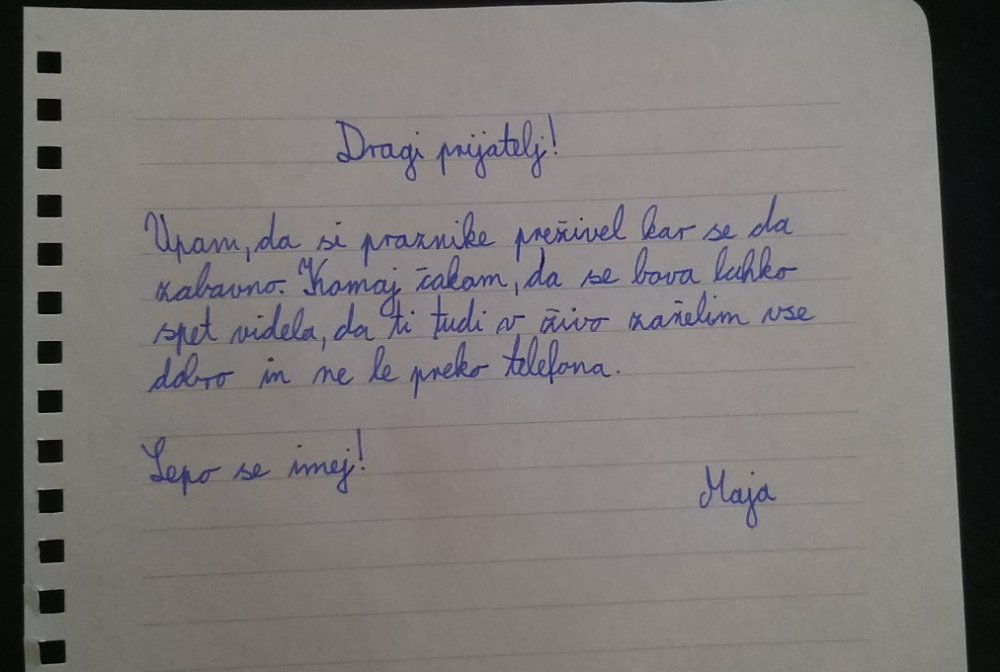 Dragi prijatelj!
Upam, da si praznike preživel kar se da
zabavno. Komaj čakam, da se bova lahko
spet videla, da ti tudi v živo zaželim vse
dobro in ne le preko telefona.
Lepo se imej!
Maja